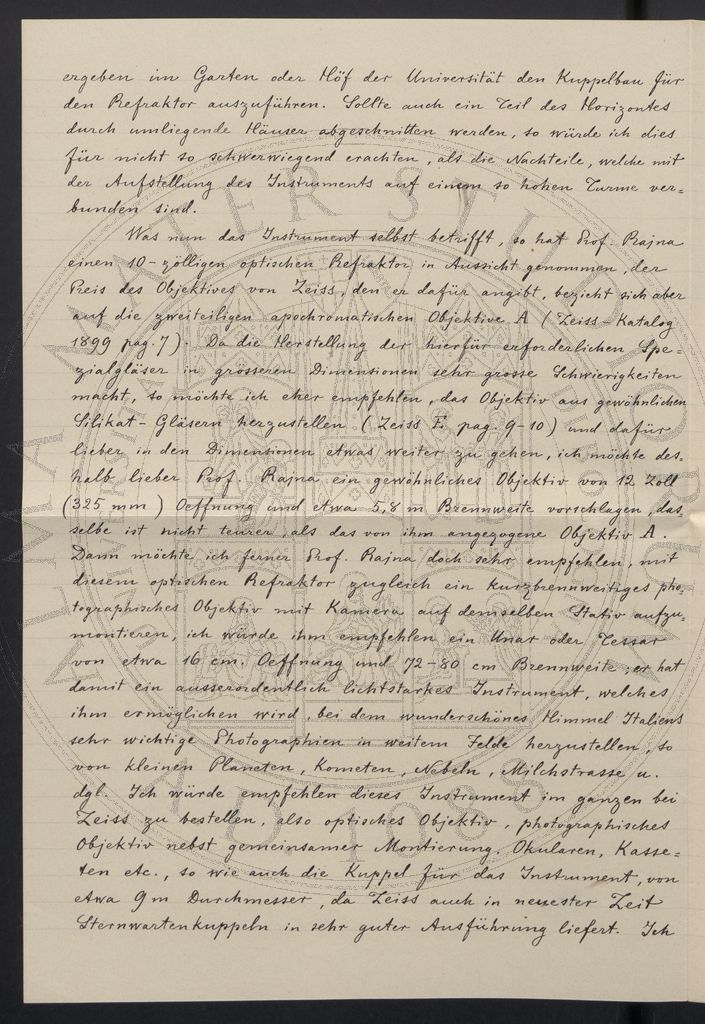 ergeben im Garten oder Höf der Universität den Kuppelbau für
den Refraktor auszuführen. Sollte auch ein Teil des Horizontes
durch umliegende Häuser abgeschnitten werden, so würde ich dies
für nicht so schwerwiegend erachten, als die Nachteile, welche mit
der Aufstellung des Instruments auf einem so hohen Turme ver=
bunden sind.
Was nun das Instrument selbst betrifft, so hat Prof. Rajna
einen 10-zölligen optischen Refraktor in Aussicht genommen, der
Preis des Objektives von Zeiss, den er dafür angibt, bezieht sich aber
auf die zweiteiligen apochromatischen Objektive A (Zeiss-Katalog
1899 pag. 7). Da die Herstellung der hierfür erforderlichen Spe=
zialgläser in grösseren Dimensionen sehr grosse Schwierigkeiten
macht, so möchte ich eher empfehlen, das Objektiv aus gewöhnlichen
Silikat-Gläsern herzustellen (Zeiss E. pag. 9-10) und dafür
lieber in den Dimensionen etwas weiter zu gehen, ich möchte des
halb lieber Prof. Rajna ein gewöhnliches Objektiv von 12 Zoll
(325 mm) Oeffnung und etwa 5,8 m Brennweite vorschlagen, das=
selbe ist nicht teurer, als das von ihm angezogene Objektiv A.
Dann möchte ich ferner Prof. Rajna doch sehr empfehlen, mit
diesem optischen Refraktor zugleich ein kurzbrennweitiges pho=
tographisches Objektiv mit Kamera auf demselben Stativ aufzu=
montieren, ich würde ihm empfehlen ein Unar oder Tessar
von etwa 16 cm. Oeffnung und 72-80 cm Brennweite; er hat
damit ein ausserordentlich lichtstarkes Instrument, welches
ihm ermöglichen wird, bei dem wunderschönes Himmel Italiens
sehr wichtige Photographien in weitem Felde herzustellen, so
von kleinen Planeten, Kometen, Nebeln, Milchstrasse u.
dgl. Ich würde empfehlen dieses Instrument im ganzen bei
Zeiss zu bestellen, also optisches Objektiv, photographisches
Objektiv nebst gemeinsamer Montierung, Okularen, Kasse=
ten etc., so wie auch die Kuppel für das Instrument, von
etwa 9 m Durchmesser, da Zeiss auch in neuester Zeit
Sternwartenkuppeln in sehr guter Ausführung liefert. Ich